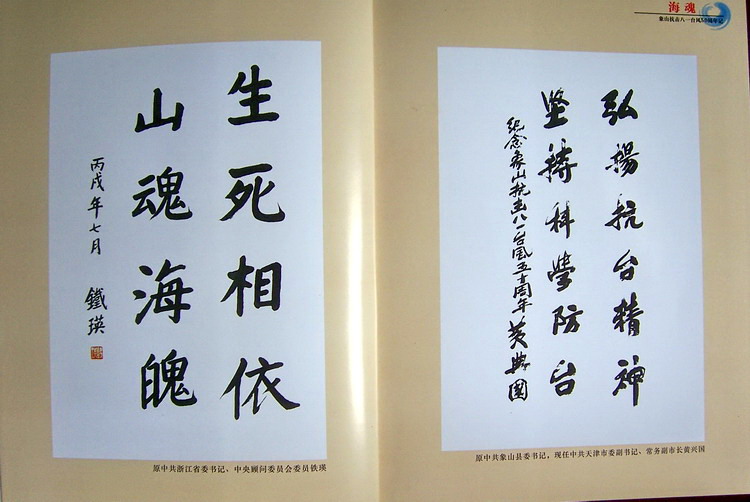 生死相依
山魂海魄
丙戌年七月 鐵瑛
原中共浙江省委书记、中央顾问委员会委员铁瑛
海魂
象山抗击八一台风50周年记
弘揚抗台精神
坚持科學防台
纪念象山抗击八一台风五十周年 黄興國
原中共象山县委书记,现任中共天津市委副书记、常务副市长黄兴国